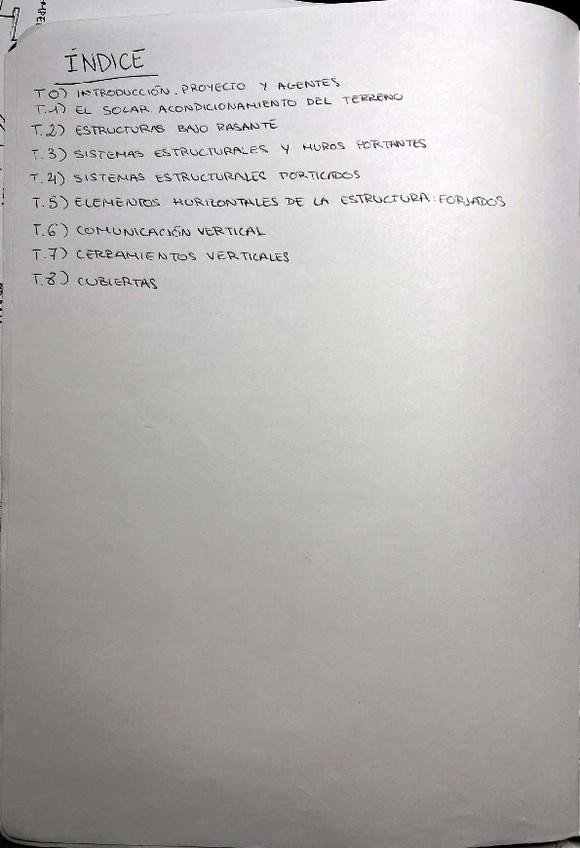 ÍNDICE
T 0) INTRODUCCIÓN. PROYECTO Y AGENTES
T.1) EL SOLAR. ACONDICIONAMIENTO DEL TERRENO
T.2) ESTRUCTURAS BAJO RASANTE
T.3) SISTEMAS ESTRUCTURALES Y MUROS PORTANTES
T.4) SISTEMAS ESTRUCTURALES PORTICADOS
T.5) ELEMENTOS HORIZONTALES DE LA ESTRUCTURA: FORJADOS
T.6) COMUNICACIÓN VERTICAL
T.7) CERRAMIENTOS VERTICALES
T.8) CUBIERTAS